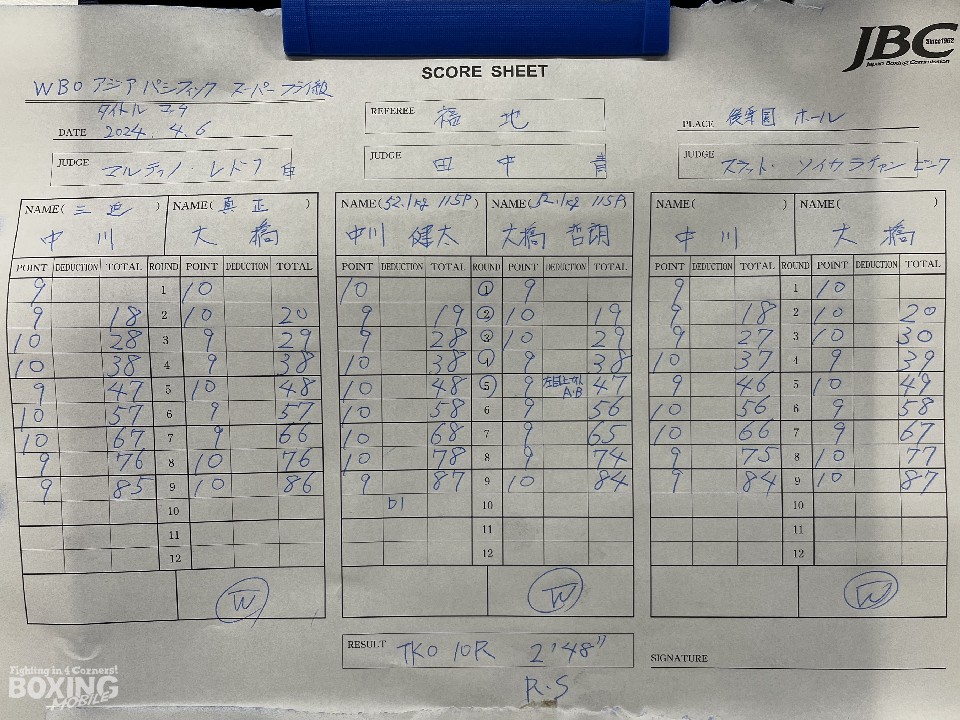 JBC
Since1952
Japan Boxing Commission
SCORE SHEET
WBO アジアパシフィック スーパーフライ級
タイトルマッチ
DATE 2024.4.6
REFEREE 福地
PLACE 後楽園ホール
JUDGE マルティノ・レドナ
JUDGE 田中 青
JUDGE スラット・ソイカラチャン
NAME( 三迫 ) NAME( 真正 ) NAME(52.1kg 115P) NAME(52.1kg 115P) NAME( ) NAME( )
中川 大橋 中川 健太 大橋 哲朗 中川 大橋
POINT DEDUCTION TOTAL ROUND POINT DEDUCTION TOTAL POINT DEDUCTION TOTAL ROUND POINT DEDUCTION TOTAL POINT DEDUCTION TOTAL ROUND POINT DEDUCTION TOTAL
9 1 10 10 1 9 9 1 10
9 18 2 10 20 9 19 2 10 19 9 18 2 10 20
10 28 3 9 29 9 28 3 10 29 9 27 3 10 30
10 38 4 9 38 10 38 4 9 38 10 37 4 9 39
9 47 5 10 48 10 48 5 9 A・B 47 9 46 5 10 49
10 57 6 9 57 10 58 6 9 56 10 56 6 9 58
10 67 7 9 66 10 68 7 9 65 10 66 7 9 67
9 76 8 10 76 10 78 8 9 74 9 75 8 10 77
9 85 9 10 86 9 87 9 10 84 9 84 9 10 87
10 D1 10 10
11 11 11
12 12 12
W W W
RESULT TKO 10R 2'48"
R.S
SIGNATURE
Fighting in 4 Corners!
BOXING
MOBILE